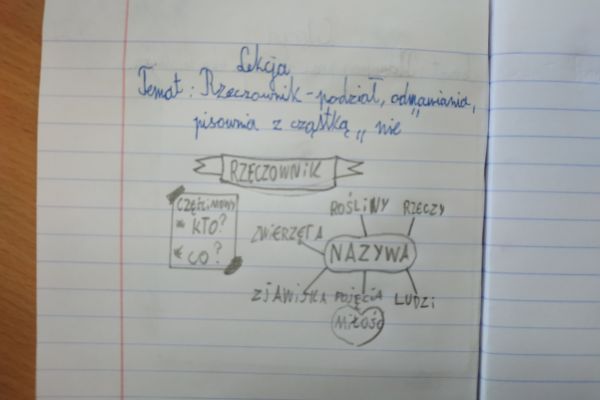 Lekcja
Temat: Rzeczownik - podział, odmiania,
pisownia z cząstką „ nie
RZECZOWNIK
CZĘŚĆ MOWY
KTO?
CO?
ROŚLINY
RZECZY
ZWIERZĘTA
NAZYWA
ZJAWISKA
POJĘCIA
LUDZI
MIŁOŚĆ